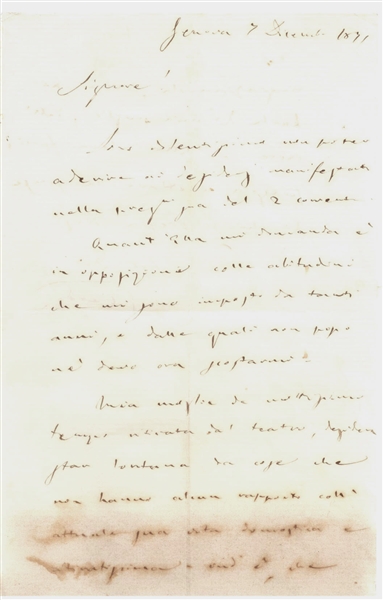 Genova 7 Dicemb 1871
Signore!
Sono dolentissimo non poter
aderire ai desiderj manifestati
nella preg. sua del 2 corrente
Quant'Ella mi domanda è
in opposizione colle abitudini
che mi sono imposto da tanti
anni, e dalle quali non posso
nè devo ora scostarmi.
Mia moglie da moltissimo
tempo ritirata dal teatro, desidera
star lontana da cose che
non hanno alcun rapporto coll'
attuale sua vita domestica e
è, che